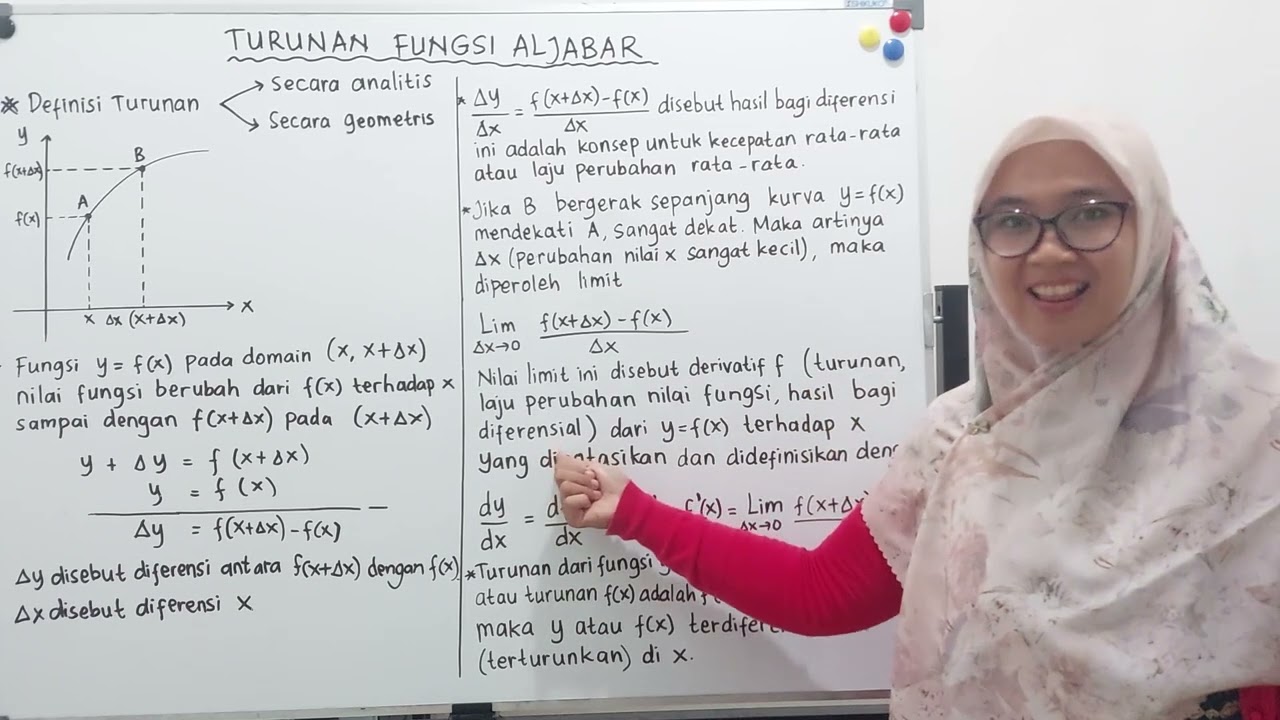 TURUNAN FUNGSI ALJABAR
* Definisi Turunan
→ Secara analitis
→ Secara geometris
y
f(x+Δx)
B
A
f(x)
x Δx (x+Δx)
x
Fungsi y = f(x) pada domain (x, x+Δx)
nilai fungsi berubah dari f(x) terhadap x
sampai dengan f(x+Δx) pada (x+Δx)
y + Δy = f (x+Δx)
y = f (x)
Δy = f(x+Δx) - f(x)
Δy disebut diferensi antara f(x+Δx) dengan f(x)
Δx disebut diferensi x
* Δy/Δx = f(x+Δx)-f(x)/Δx disebut hasil bagi diferensi
ini adalah konsep untuk kecepatan rata-rata
atau laju perubahan rata-rata.
* Jika B bergerak sepanjang kurva y=f(x)
mendekati A, sangat dekat. Maka artinya
Δx (perubahan nilai x sangat kecil), maka
diperoleh limit
Lim Δx→0 f(x+Δx) - f(x)/Δx
Nilai limit ini disebut derivatif f (turunan,
laju perubahan nilai fungsi, hasil bagi
diferensial) dari y=f(x) terhadap x
yang dan didefinisikan
dy/dx = dx f'(x) = Lim Δx→0 f(x+Δx)
* Turunan dari fungsi
atau turunan f(x) adalah
maka y atau f(x)
(terturunkan) di x.